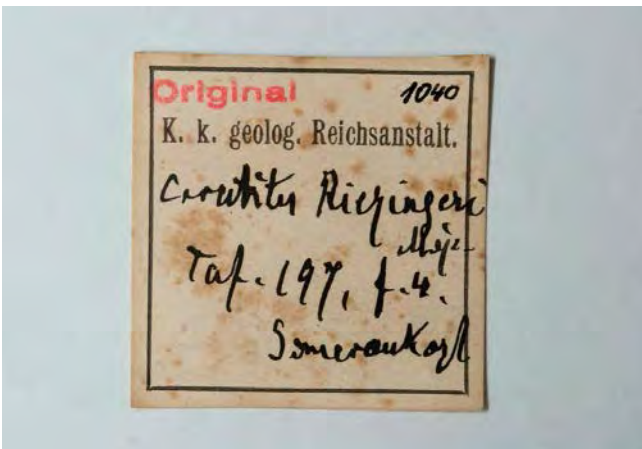 Original 1040
K. k. geolog. Reichsanstalt.
Ceratites Riezingeri
Mojs.
Taf. 197, f. 4.
Someraukogl